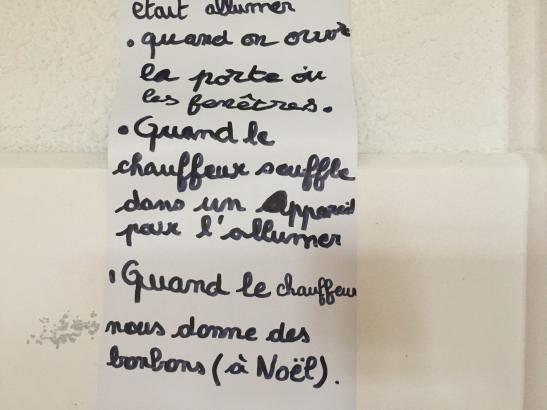 etait allumer
• quand on ouvre
la porte ou
les fenêtres.
• Quand le
chauffeur souffle
dans un Appareil
pour l'allumer
• Quand le chauffeur
nous donne des
bonbons (à Noël).